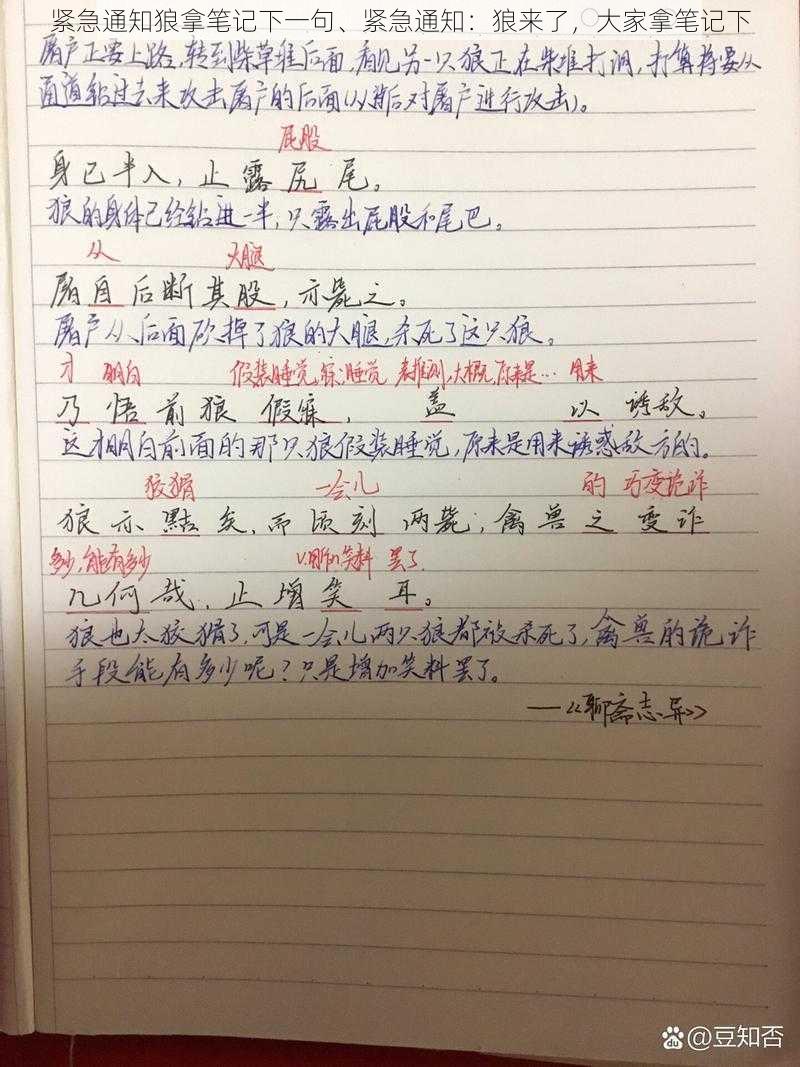 紧急通知狼拿笔记下一句、紧急通知：狼来了，大家拿笔记下
屠户正要上路，转到柴草堆后面，看见另一只狼正在柴堆打洞，打算将要从
通道钻过去来攻击屠户的后面(从背后对屠户进行攻击)。
屁股
身已半入，止露尻尾。
狼的身体已经钻进一半，只露出屁股和尾巴。
从 大腿
屠自后断其股，亦毙之。
屠户从后面砍掉了狼的大腿，杀死了这只狼。
才 明白 假装睡觉，寐：睡觉 表推测，大概，原来是… 用来
乃悟前狼假寐，盖以诱敌。
这才明白前面的那只狼假装睡觉，原来是用来诱惑敌方的。
狡猾 一会儿 的 巧变诡诈
狼亦黠矣，而顷刻两毙，禽兽之变诈
多少，能有多少 笑料 罢了
几何哉，止增笑耳。
狼也太狡猾了，可是一会儿两只狼都被杀死了，禽兽的诡诈
手段能有多少呢？只是增加笑料罢了。
——《聊斋志异》
Bai du @豆知否